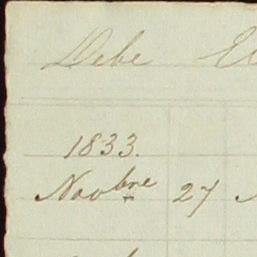 Debe El
1833.
Novbre 27